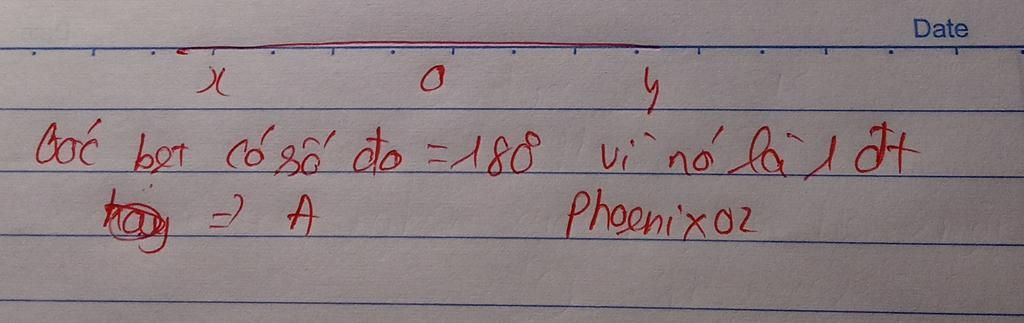 Date
x O y
Góc bẹt có số đo = 180 vì nó là 1 đt
=> A Phoenix02